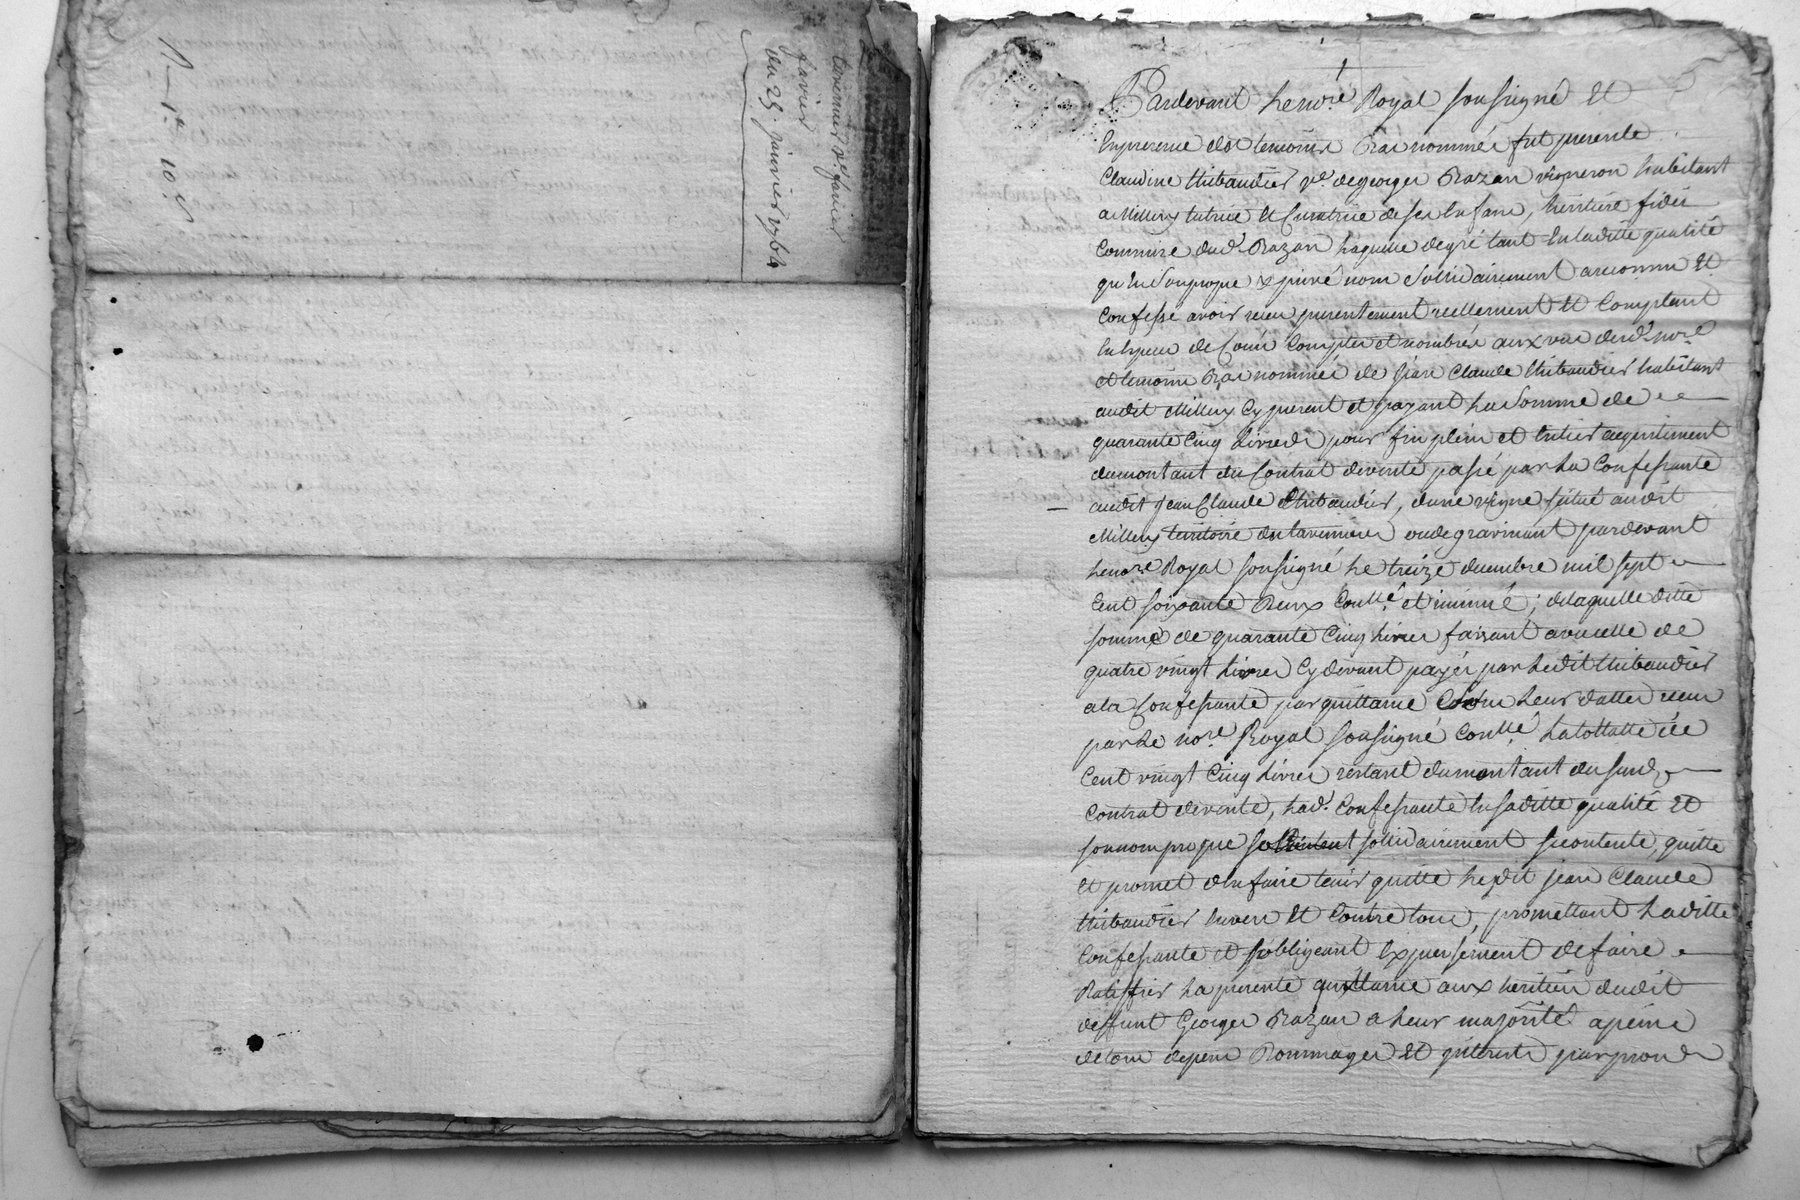 du 25. janvier 1764
1 - 1ere 10 s
Pardevant le no.re Royal soussigné et
En presence des temoins Bas nommés fut presente
Claudine thibaudier v.e de george Razan vigneron habitant
a Millery tutrice et Curatrice de ses Enfans, heritiere fidei
Commire dud.t Razan laquelle de gré tant En laditte qualité
qu'en son propre & privé nom solidairement areconnu et
Confessé avoir reçu presentement reellement et Comptant
En Especes de Cours Comptées et nombrés aux vue desd.t no.re
et temoins Bas nommés de sieur Claude thibaudier habitant
audit Millery Cy present et payant la Somme de
quarante Cinq Livres pour fin plein et Entier acquittement
du montant du Contrat de vente passé par la Confessante
audit jean Claude thibaudier, d'une vigne située audit
Millery territoire des tavernieres ou de gravinant pardevant
le no.re Royal soussigné le treize decembre mil sept
Cent soixante Deux Contllé et insinué; delaquelle ditte
somme de quarante Cinq Livres faisant avec celle de
quatre vingt Livres Cy devant payés par ledit thibaudier
a la Confessante par quittance sous leurs dattes reçu
par le no.re Royal soussigné Contllé la tottalle de
Cent vingt Cinq Livres restant du montant du susd.
Contrat de vente, lad.t Confessante En saditte qualité et
son nom propre solidairement se contente, quitte
et promet d'en faire tenir quitte ledit jean Claude
thibaudier Envers et Contre tous, promettant laditte
Confessante et s'obligeant Expressement de faire
Ratiffier la presente quittance aux heritiers dudit
deffunt George Razan a leur majorité apeine
de tous depens Dommages et interets